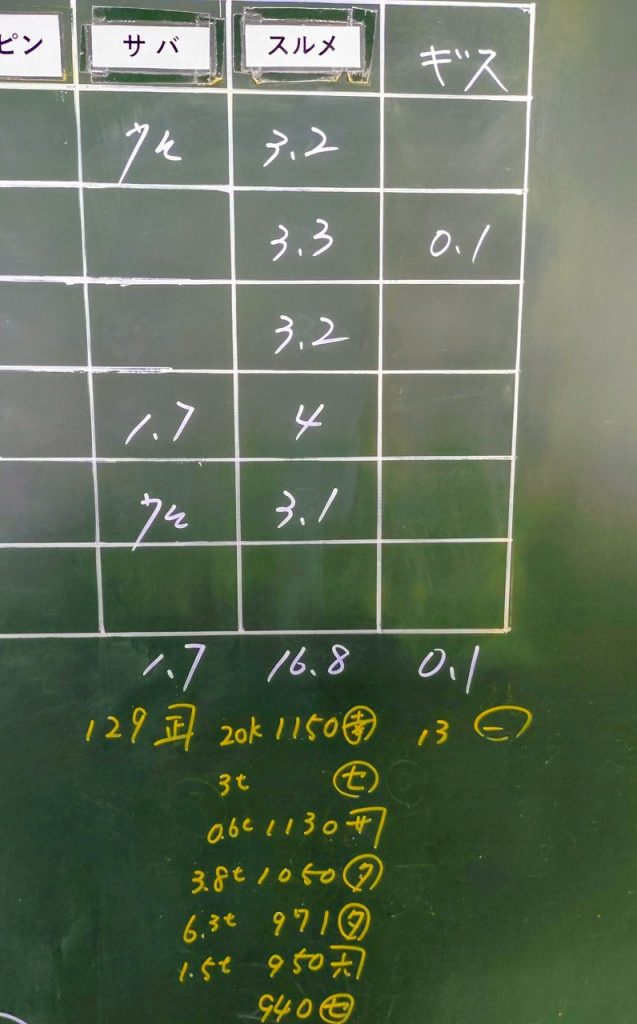 ピン サバ スルメ ギス
3.2
3.3 0.1
3.2
1.7 4
3.1
1.7 16.8 0.1
129 正 20k 1150 13 二
3t 七
0.6t 1130 サ
3.8t 1050 タ
6.3t 971 タ
1.5t 950 六
940 七